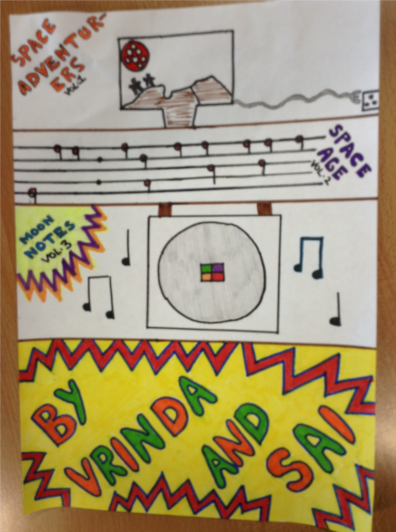 SPACE
ADVENTUR-
ERS
VOL.1
SPACE
AGE
VOL.2
MOON
NOTES
VOL.3
BY
VRINDA
AND
SAI